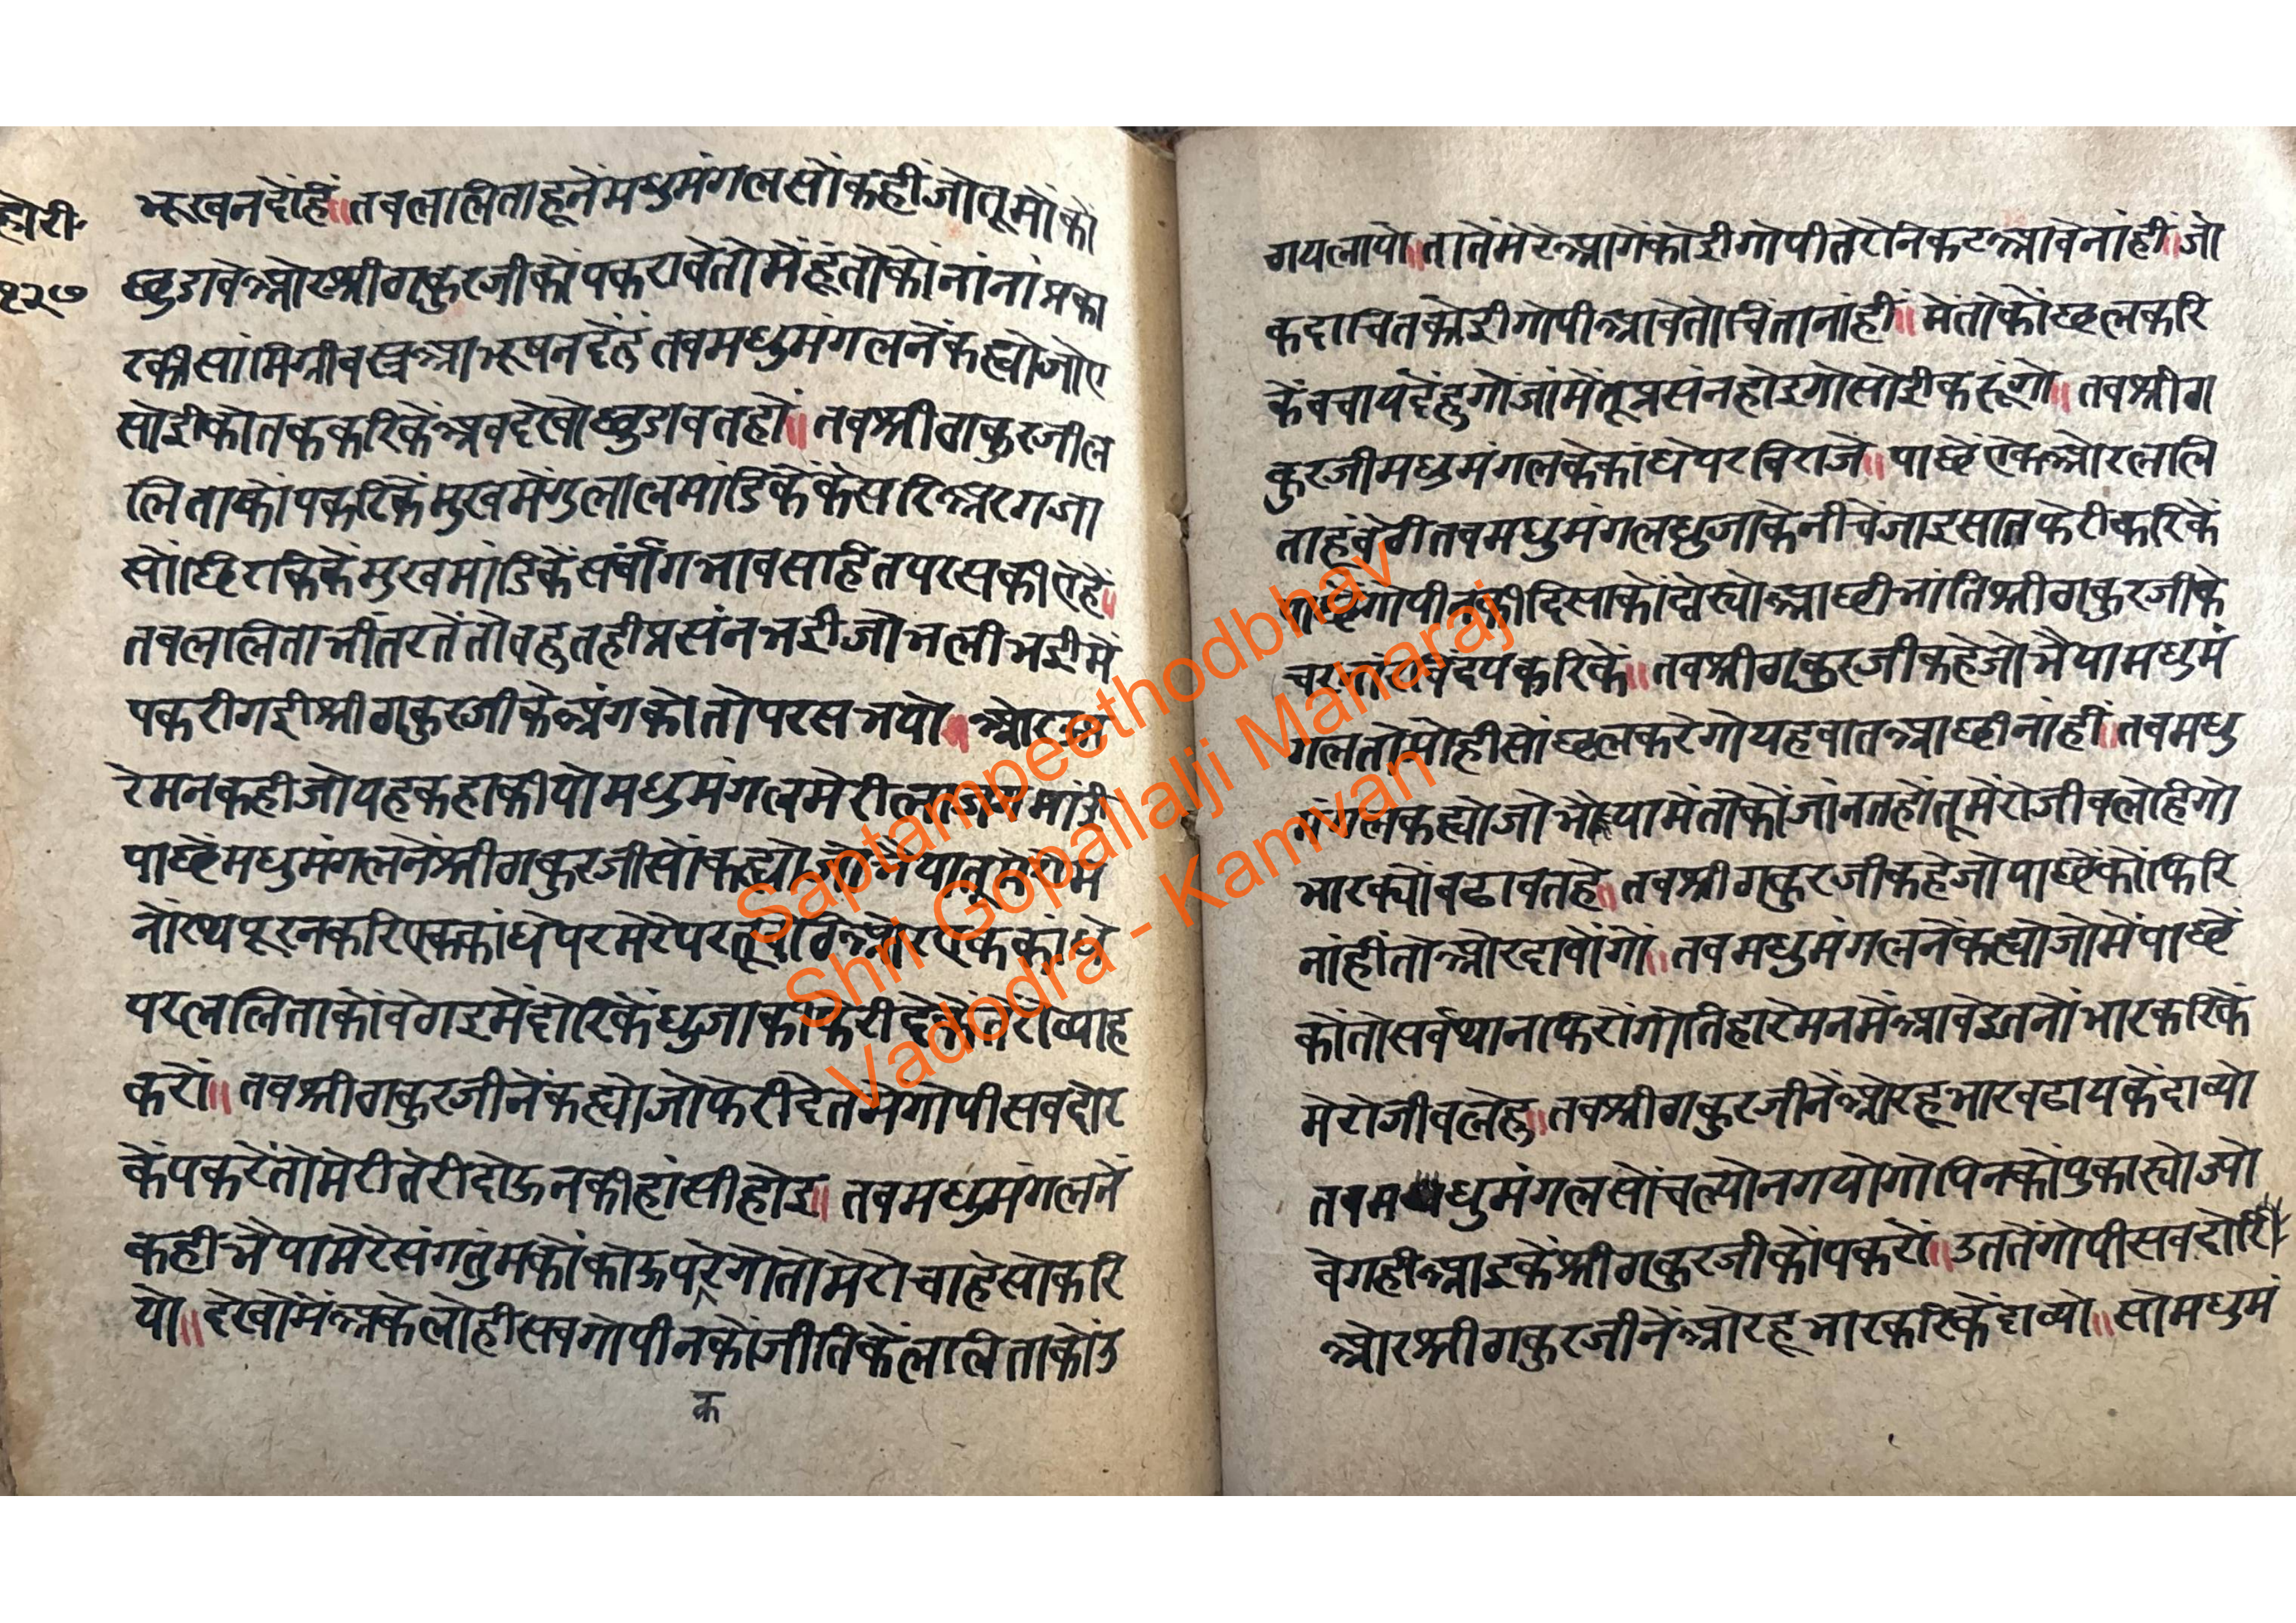 होरी
१२७
भूखन देंहें॥ तब ललिता हूनें मधुमंगल सों कही जो तू मोकों
छुडावे ओर श्रीठाकुरजी कों पकरावे तो में हूं तोकों नांनां प्रका
रकी सांमिग्री वस्त्र आभूषन देंहूं तब मधुमंगलनें कह्यो जो ए
सोई कोतक करिकें अब देखो छुडावत हों॥ तब श्रीठाकुरजी ल
लिता कों पकरिकें मुख में गुलाल मांडिकें केसरि अरगजा
सों छिरकिकें मुख मांडिकें सर्वांग भाव सहित परस कीए हें॥
तब ललिता भीतर तें तो बहुत ही प्रसंन भई जो भली भई में
पकरी गई श्रीठाकुरजी के अंग को तो परस भयो॥ ओर
रे मन कही जो यह कहा कीयो मधुमंगल मेरी
पाछें मधुमंगलनें श्रीठाकुरजी सों कह्यो जो भैया तू मेरो म
नोरथ पूरन करि एक कांधे पर मेरे पर तू बेठि ओर एक कांधे
पर ललिता कों बेगइ में दोरिकें धुजा की फेरी देकें तेरो व्याह
करों॥ तब श्रीठाकुरजीनें कह्यो जो फेरी देत में गोपी सब दोर
कें पकरें तो मेरी तेरी दोऊन की हांसी होइ॥ तब मधुमंगलनें
कही भैया मेरे संग तुमकों कोऊ परेगो तो मेरो चाहे सो करि
यो॥ देखो में अकेलो ही सब गोपीन कों जीतिकें ललिता कों उ
क
गय लायो॥ तातें मेरे आगें कोई गोपी तेरे निकट आवे नांही॥ जो
कदाचित कोई गोपी आवे तो चिंता नांही॥ में तोकों छल करि
कें बचाय देंहुगो जांमें तू प्रसंन होइगो सोई करूंगो॥ तब श्रीठा
कुरजी मधुमंगल के कांधे पर बिराजे॥ पाछें एक ओर ललि
ता हूं बेठी तब मधुमंगल धुजा के नीचें जाइ सात फेरी करिकें
पाछें गोपीन की दिसा कों देख्यो आछी भांति श्रीठाकुरजी के
चरनारविंद पकरिकें॥ तब श्रीठाकुरजी कहे जो भैया मधुमं
गल तो मोही सों छल करेगो यह बात आछी नांही॥ तब मधु
मंगल कह्यो जो भैया में तोकों जांनत हों तू मेरो जीव लेहिगो
भार क्यों बढावत हे॥ तब श्रीठाकुरजी कहे जो पाछें कों फिरि
नांहीं तो ओर दाबोंगो॥ तब मधुमंगलनें कह्यो जो में पाछें
कों तो सर्वथा ना फिरोंगो तिहारे मन में आवे इतनों भार करिकें
मेरो जीव लेहु॥ तब श्रीठाकुरजीनें ओर हू भार बढायकें दाब्यो
तब मधुमंगल सों चल्यो न गयो गोपिन कों पुकार्यो ज्यो
बेगही आइकें श्रीठाकुरजी कों पकरों॥ उततें गोपी सब दोरी
ओर श्रीठाकुरजीनें ओर हू भार करिकें दाब्यो॥ सो मधुमं
Saptampeethodbhav
Shri Gopallalji Maharaj
Vadodra - Kamvan